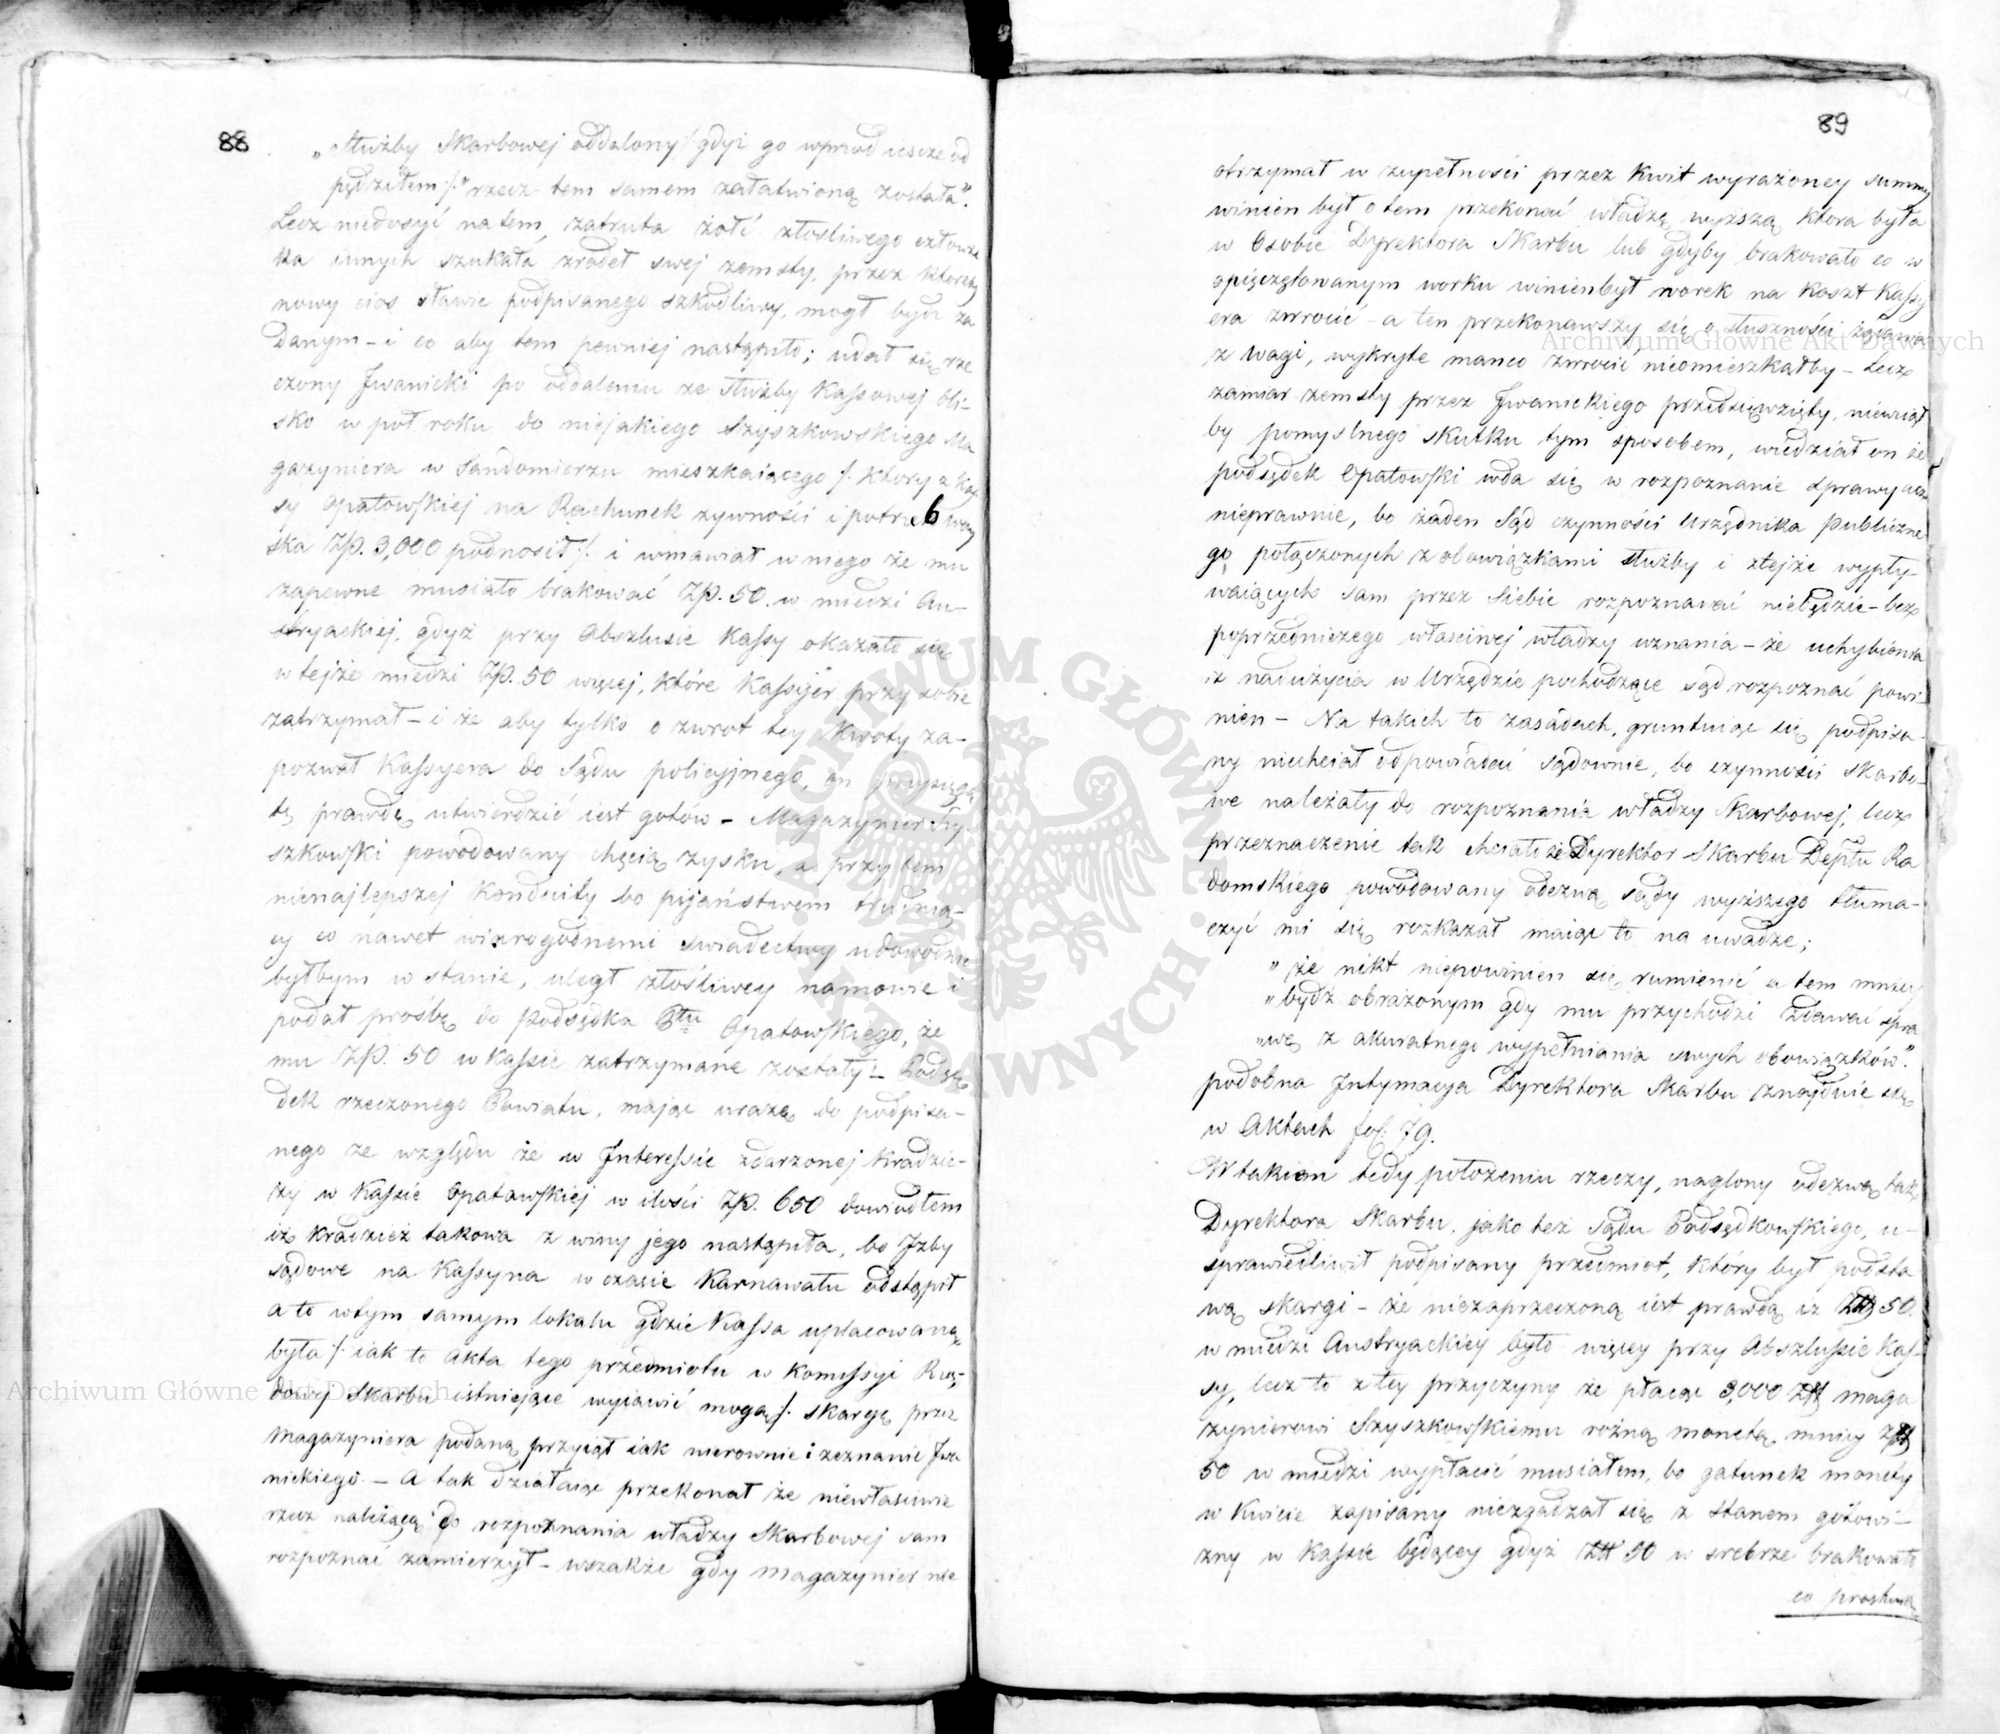 88
„Służby Skarbowej oddalony /: gdyż go wprzód ieszcze od
pędziłem :/ rzecz tem samem załatwioną została".
Lecz niedosyć na tem, zatruta żółć złośliwego człowie
ka innych szukała zrodeł swej zemsty, przez ktoreby
nowy cios sławie podpisanego szkodliwy, mogł bydz za
danym – i co aby tem pewniej nastąpiło; udał się rze
czony Jwanicki po oddaleniu ze służby Kassowej bli–
sko w poł roku do niejakiego Szyszkowskiego Ma
gazyniera w Sandomierzu mieszkaiącego /: ktory z Kas
sy Opatowskiej na Rachunek zywności i potrzeb woy
ska Zp. 3,000 podnosił :/ i wmawiał w niego że mu
zapewne musiało brakować Zp. 50. w miedzi Au–
stryackiej, gdyż przy Abszlusie Kassy okazało się
w tejże miedzi Zp. 50 więcej, które Kassyer przy sobie
zatrzymał – i że aby tylko o zwrot tey kwoty za–
pozwał Kassyera do Sądu policyjnego, on przysięgą
tę prawdę utwierdzić iest gotów – Magazynier Szy
szkowski powodowany chęcią zysku, a przytem
nienajlepszej Konduity bo pijaństwem trudnią–
cy co nawet wiarogodnemi swiadectwy udowodnić
byłbym w stanie, uległ złośliwey namowie i
podał prośbę do Podsędka Ptu Opatowskiego, że
mu Zp. 50 w Kassie zatrzymane zostały – Podsę
dek rzeczonego Powiatu, mając urazę do podpisa–
nego ze względu że w Jnteressie zdarzonej Kradzie–
ży w Kassie Opatowskiej w ilości Zp. 650 dowiodłem
iż kradzież takowa z winy jego nastąpiła, bo Jzby
Sądowe na Kassyna w czasie Karnawału odstąpił
a to w tym samym lokalu gdzie Kassa uplacowaną
była /: iak to Akta tego przedmiotu w Komissyi Rzą–
dowej Skarbu istniejące wyiawić mogą :/ skargę przez
Magazyniera podaną przyiął iak nierownie i zeznanie Jwa
nickiego. – A tak działaiąc przekonał że niewłasciwie
rzecz należącą do rozpoznania władzy Skarbowej sam
rozpoznać zamierzył – wszakże gdy Magazynier nie
89
otrzymał w zupełności przez Kwit wyrażoney summy
winien był o tem przekonać władzę wyższą ktora była
w Osobie Dyrektora Skarbu lub gdyby brakowało co w
opięczętowanym worku winien był worek na koszt Kassy
era zwrocić – a ten przekonawszy się o słuszności żądania
z wagi, wykryte manco zwrocić nieomieszkałby – Lecz
zamiar zemsty przez Jwanickiego przedsięwzięty, niewziął
by pomyslnego skutku tym sposobem, wiedział on że
podsędek Opatowski wda się w rozpoznanie sprawy acz
nieprawnie, bo żaden Sąd czynności Urzędnika Publiczne
go połączonych z obowiązkami służby i ztejże wypły–
waiących sam przez siebie rozpoznawać niebędzie – bez
poprzedniczego właściwej władzy uznania – że uchybienia
iz nadużycia w Urzędzie pochodzące sąd rozpoznać powi–
nien – Na takich to zasadach, gruntuiąc się podpisa–
ny niechciał odpowiadać sądownie, bo czynności skarbo–
we należały do rozpoznania władzy Skarbowej, lecz
przeznaczenie tak chciało że Dyrektor Skarbu Deptu Ra
domskiego powodowany odezwą sądu wyższego tłuma–
czyć mi się rozkazał maiąc to na uwadze;
„ że nikt niepowinien się rumienić a tem mniey
„ bydź obrażonym gdy mu przychodzi zdawać spra
„ wę z akuratnego wypełniania swych obowiązków".
podobna Jntymacya Dyrektora Skarbu znajduie się
w Aktach fol: 79.
W takiem tedy położeniu rzeczy, naglony odezwą tak
Dyrektora Skarbu, jako też sądu Podsędkowskiego, u–
sprawiedliwił podpisany przedmiot, który był podsta
wą skargi – że niezaprzeczoną iest prawdą iz Zł 50.
w miedzi Austryackiey było więcey przy Abszlussie Kas–
sy, lecz to z tey przyczyny że płacąc 3,000 Zł maga
zynierowi Szyszkowskiemu rożną monetą mniey Zł
50 w miedzi wypłacić musiałem, bo gatunek monety
w Kwicie zapisany niezgadzał się z stanem gotowi–
zny w Kassie będącey gdyż Zł 50 w srebrze brakowało
co